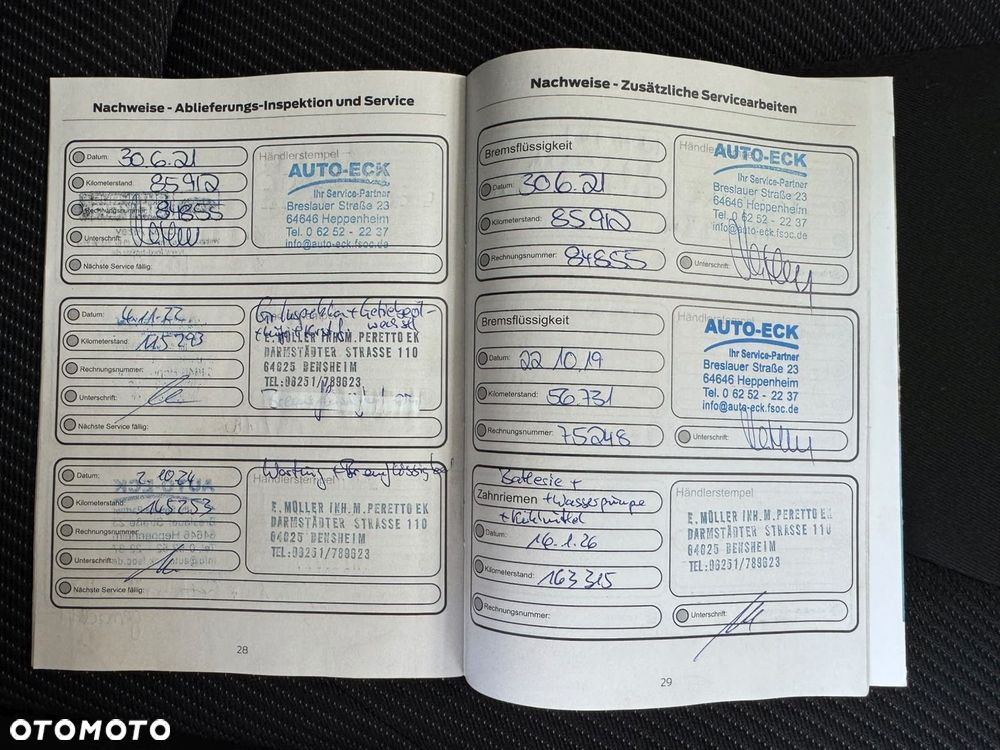 Nachweise - Ablieferungs-Inspektion und Service
Datum: 30.6.21
Kilometerstand: 85910
Rechnungsnummer: 84855
Unterschrift:
Nächste Service fällig:
Händlerstempel
AUTO-ECK
Ihr Service-Partner
Breslauer Straße 23
64646 Heppenheim
Tel. 0 62 52 - 22 37
info@auto-eck.fsoc.de
Datum: 4.11.22
Kilometerstand: 115293
Rechnungsnummer:
Unterschrift:
Nächste Service fällig:
Gr. Inspektion + Getriebeöl-
wechsel
E. MÜLLER INH. M. PERETTO EK
DARMSTÄDTER STRASSE 110
64625 BENSHEIM
TEL.:06251/789623
Datum: 2.10.24
Kilometerstand: 145253
Rechnungsnummer:
Unterschrift:
Nächste Service fällig:
Wartung + Bremsflüssigkeit
Händlerstempel
E. MÜLLER INH. M. PERETTO EK
DARMSTÄDTER STRASSE 110
64625 BENSHEIM
TEL.:06251/789623
28
Nachweise - Zusätzliche Servicearbeiten
Bremsflüssigkeit
Datum: 30.6.21
Kilometerstand: 85910
Rechnungsnummer: 84855
Händlerstempel
AUTO-ECK
Ihr Service-Partner
Breslauer Straße 23
64646 Heppenheim
Tel. 0 62 52 - 22 37
info@auto-eck.fsoc.de
Unterschrift:
Bremsflüssigkeit
Datum: 22.10.19
Kilometerstand: 56.731
Rechnungsnummer: 75248
Händlerstempel
AUTO-ECK
Ihr Service-Partner
Breslauer Straße 23
64646 Heppenheim
Tel. 0 62 52 - 22 37
info@auto-eck.fsoc.de
Unterschrift:
Batterie +
Zahnriemen + Wasserpumpe
+ Kühlmittel
Datum: 16.1.26
Kilometerstand: 163315
Rechnungsnummer:
Händlerstempel
E. MÜLLER INH. M. PERETTO EK
DARMSTÄDTER STRASSE 110
64625 BENSHEIM
TEL.:06251/789623
Unterschrift:
29
OTOMOTO